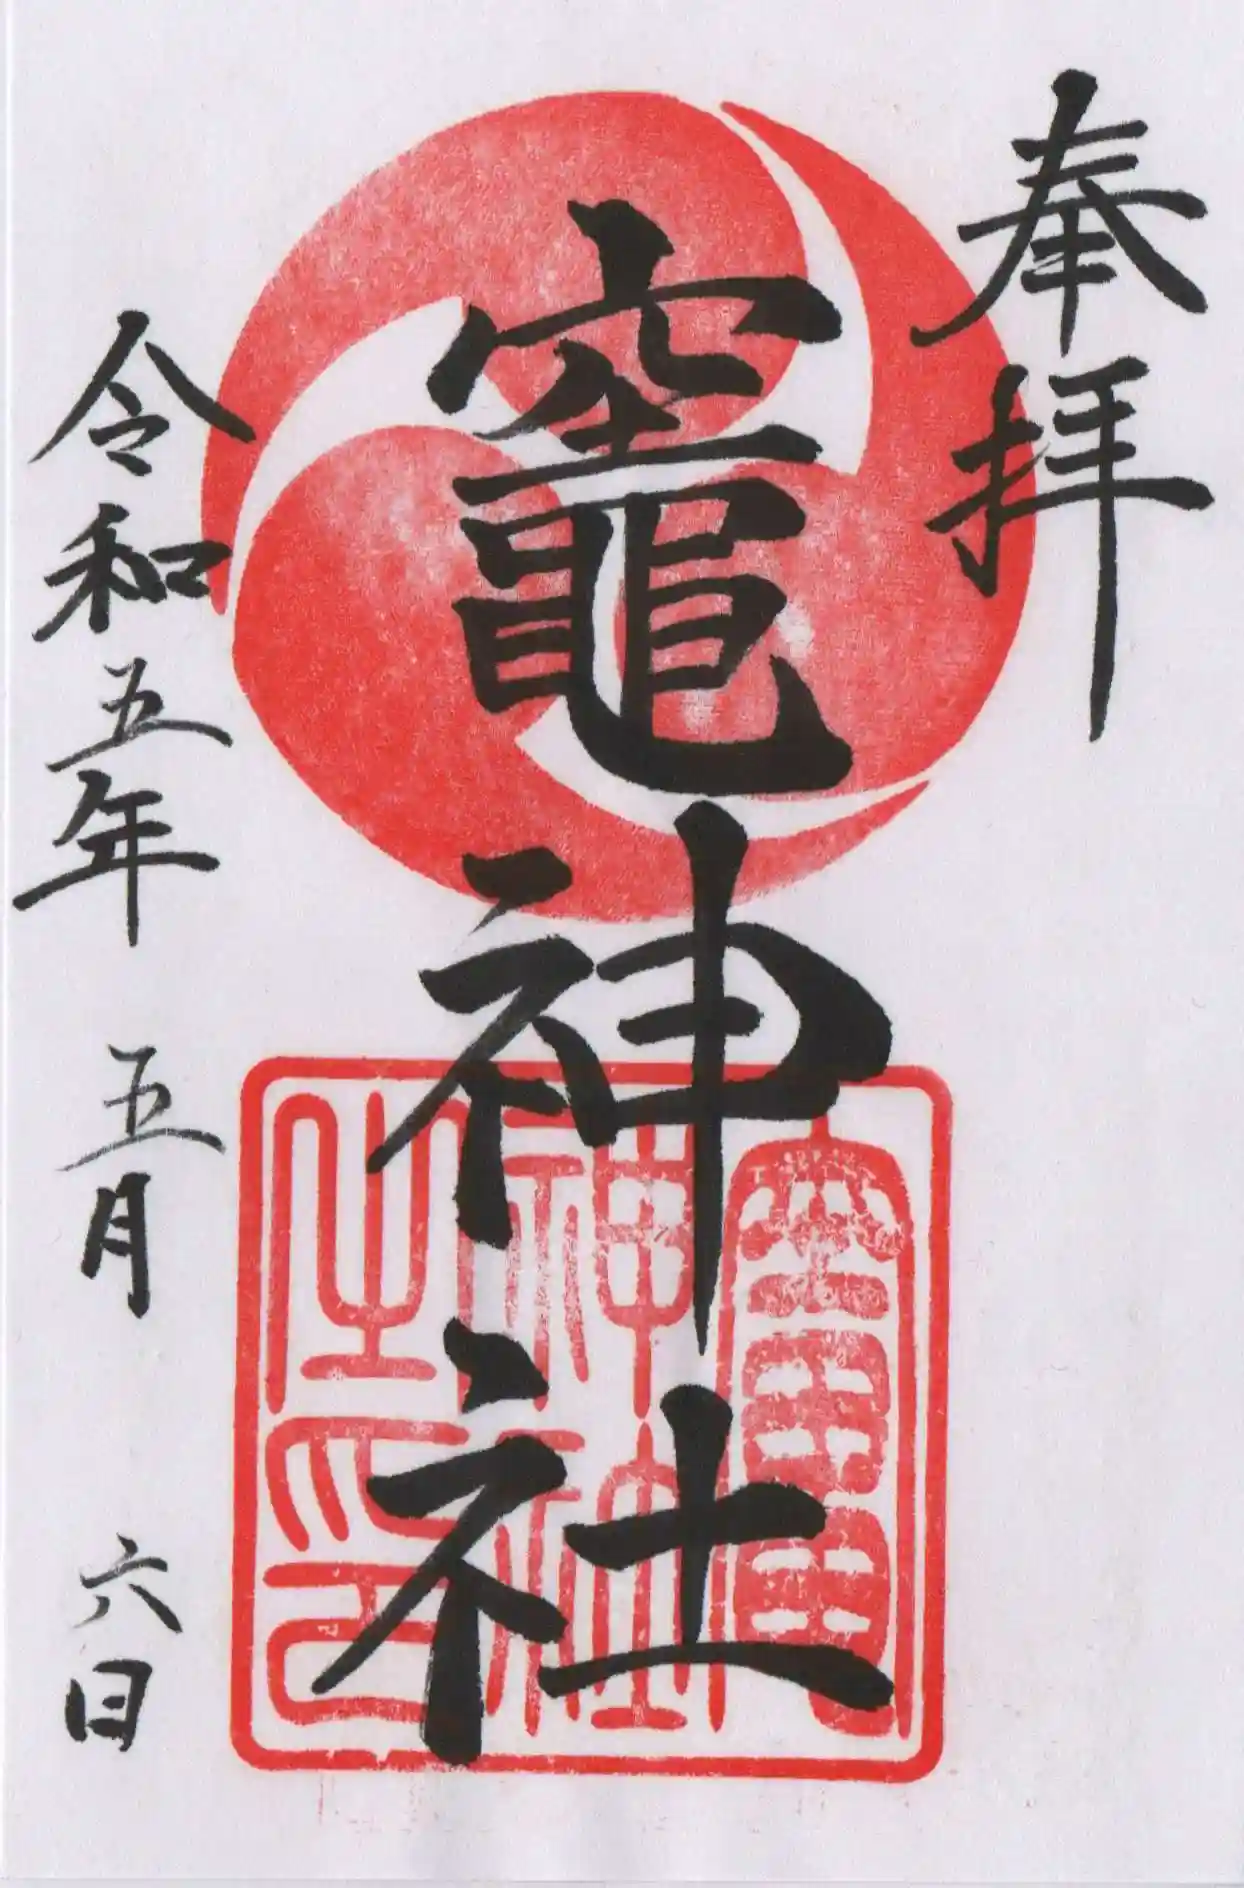 奉拝
竈神社
令和五年 五月 六日
竈
神社
之印